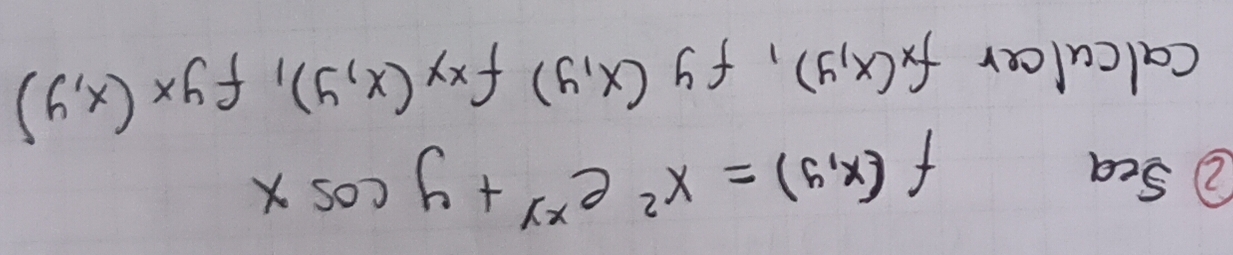 ② Sea f(x,y) = x² e^xy + y cos x
calcular fx(x,y), fy (x,y) fxx (x,y), fyx (x,y)